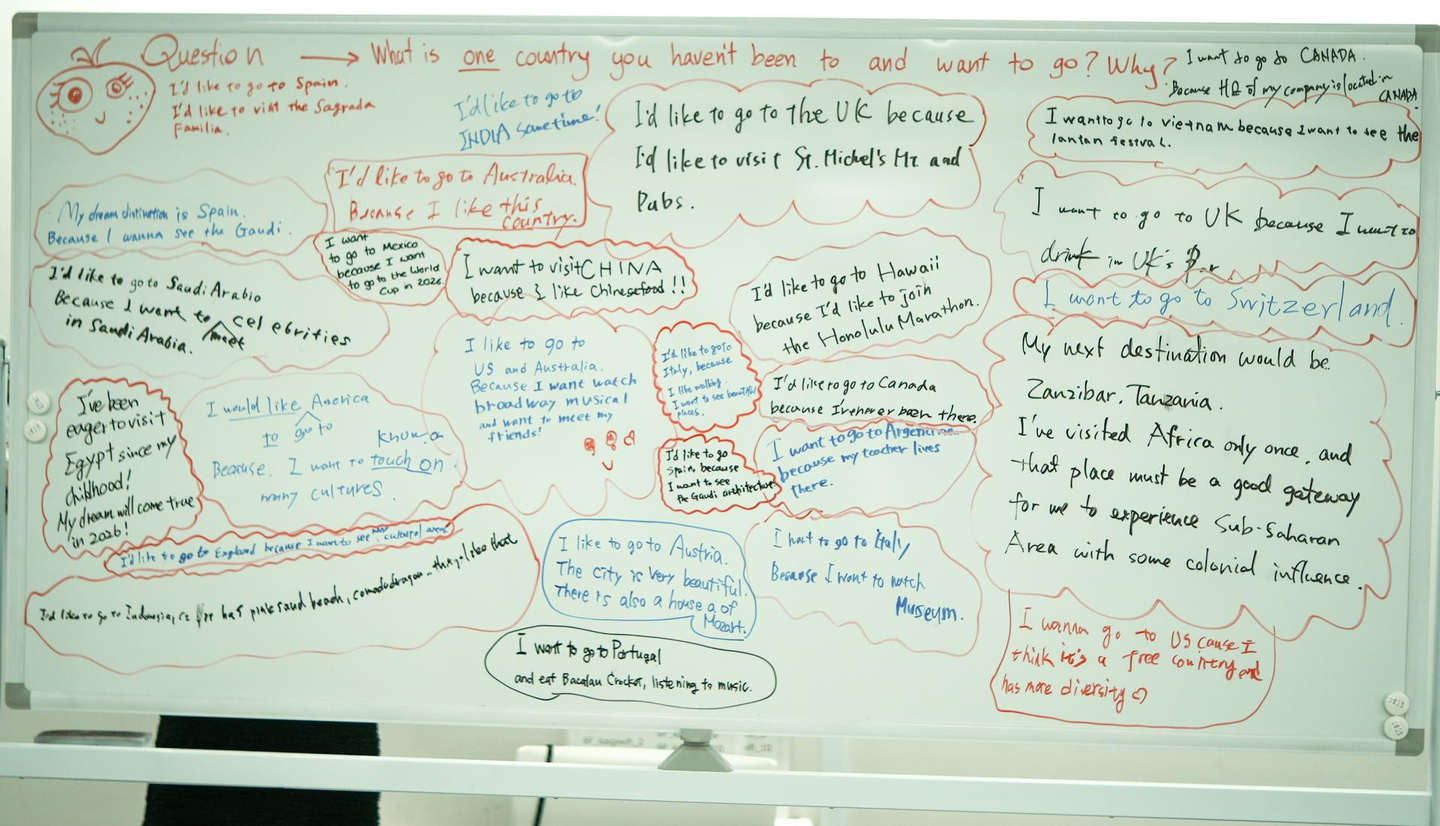 Question → What is one country you haven't been to and want to go? Why?
I'd like to go to Spain.
I'd like to visit the Sagrada
Familia.
I'd like to go to
INDIA sometime!
I'd like to go to the UK because
I'd like to visit St. Michel's Mt. and
Pubs.
I want to go to CANADA.
Because HQ of my company is located in
CANADA
I want to go to vietnam because I want to see the
lantan festival.
I'd like to go to Australia.
Because I like this
country.
My dream distination is Spain.
Because I wanna see the Gaudi.
I want
to go to Mexico
because I want
to go to the World
Cup in 2026.
I want to visit CHINA
because I like Chinese food!!
I'd like to go to Hawaii
because I'd like to join
the Honolulu Marathon.
I want to go to UK because I want to
drink in UK's
I want to go to Switzerland.
I'd like to go to Saudi Arabio
Because I want to meet celebrities
in Saudi Arabia.
I like to go to
US and Australia.
Because I want watch
broadway musical
and want to meet my
friends!
I'd like to go to
Italy, because
I like walking.
I want to see beautiful
places.
I'd like to go to Canada
because I never been there.
My next destination would be
Zanzibar, Tanzania.
I've visited Africa only once, and
that place must be a good gateway
for me to experience Sub-Saharan
Area with some colonial influence.
I've been
eager to visit
Egypt since my
childhood!
My dream will come true
in 2026!
I would like America
to go to
know a
Because. I want to touch on
many cultures.
I'd like to go
Spain because
I want to see
the Gaudi architecture
I want to go to
because my teacher lives
there.
I'd like to go to England because I want to see cultural areas
I'd like to go to Indonesia, has pink sand beach, like that
I like to go to Austria.
The city is very beautiful.
There is also a house of
Mozart.
I want to go to Italy
Because I want to watch
Museum.
I want to go to Portugal
and eat Bacalau Crocket, listening to music.
I wanna go to US cause I
think it's a free country and
has more diversity